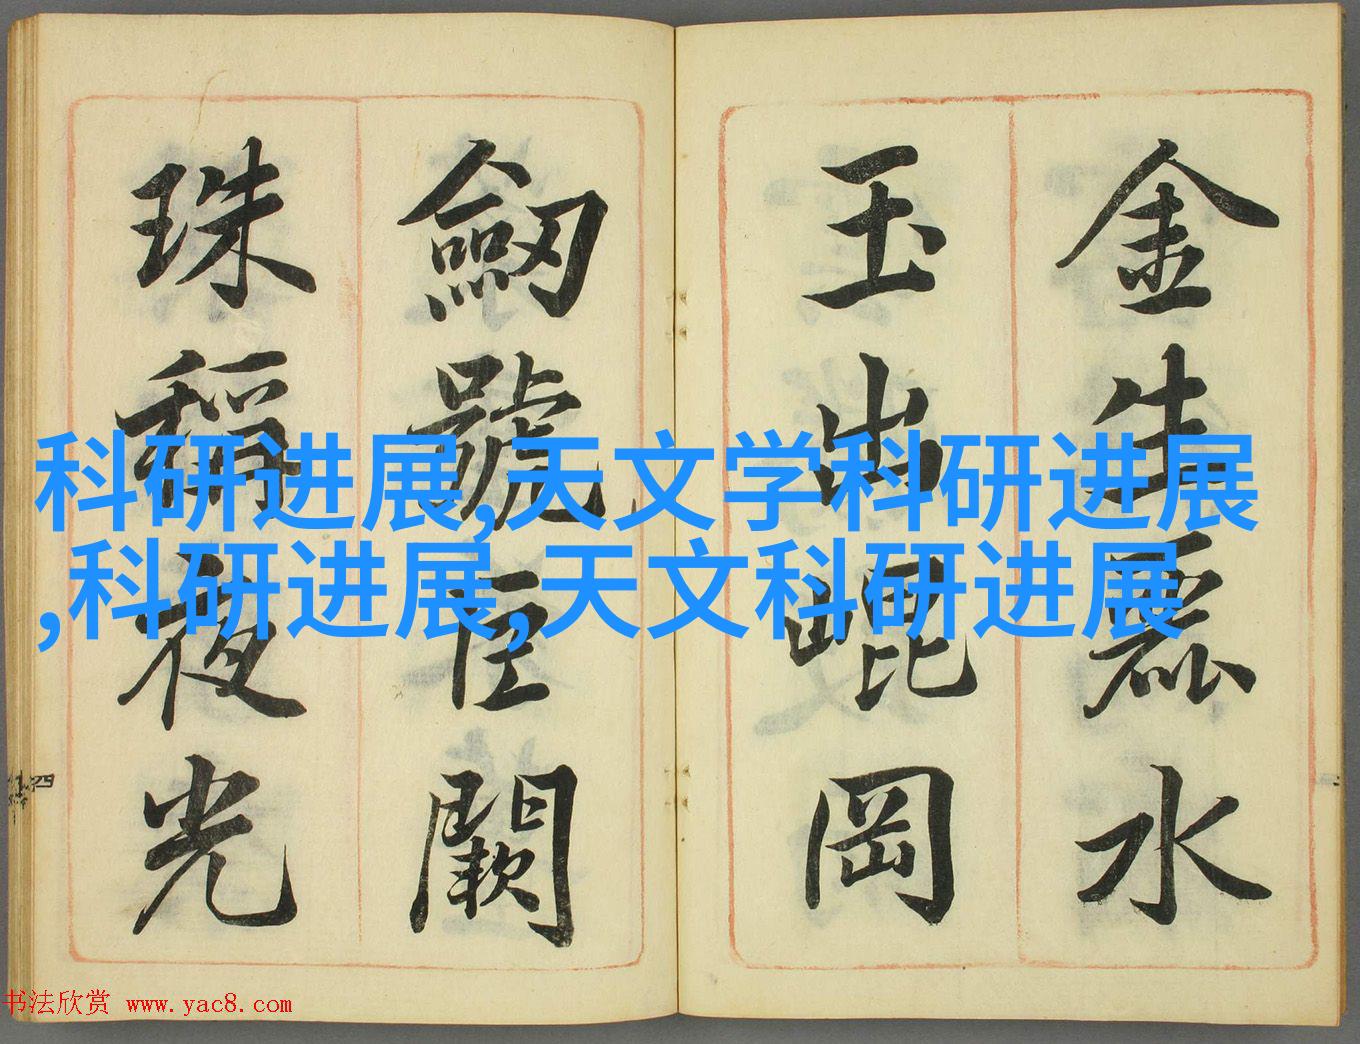 金生麗水
玉出崐岡
劒號巨闕
珠稱夜光
科研进展,天文学科研进展
,科研进展,天文科研进展
四
书法欣赏 www.yac8.com